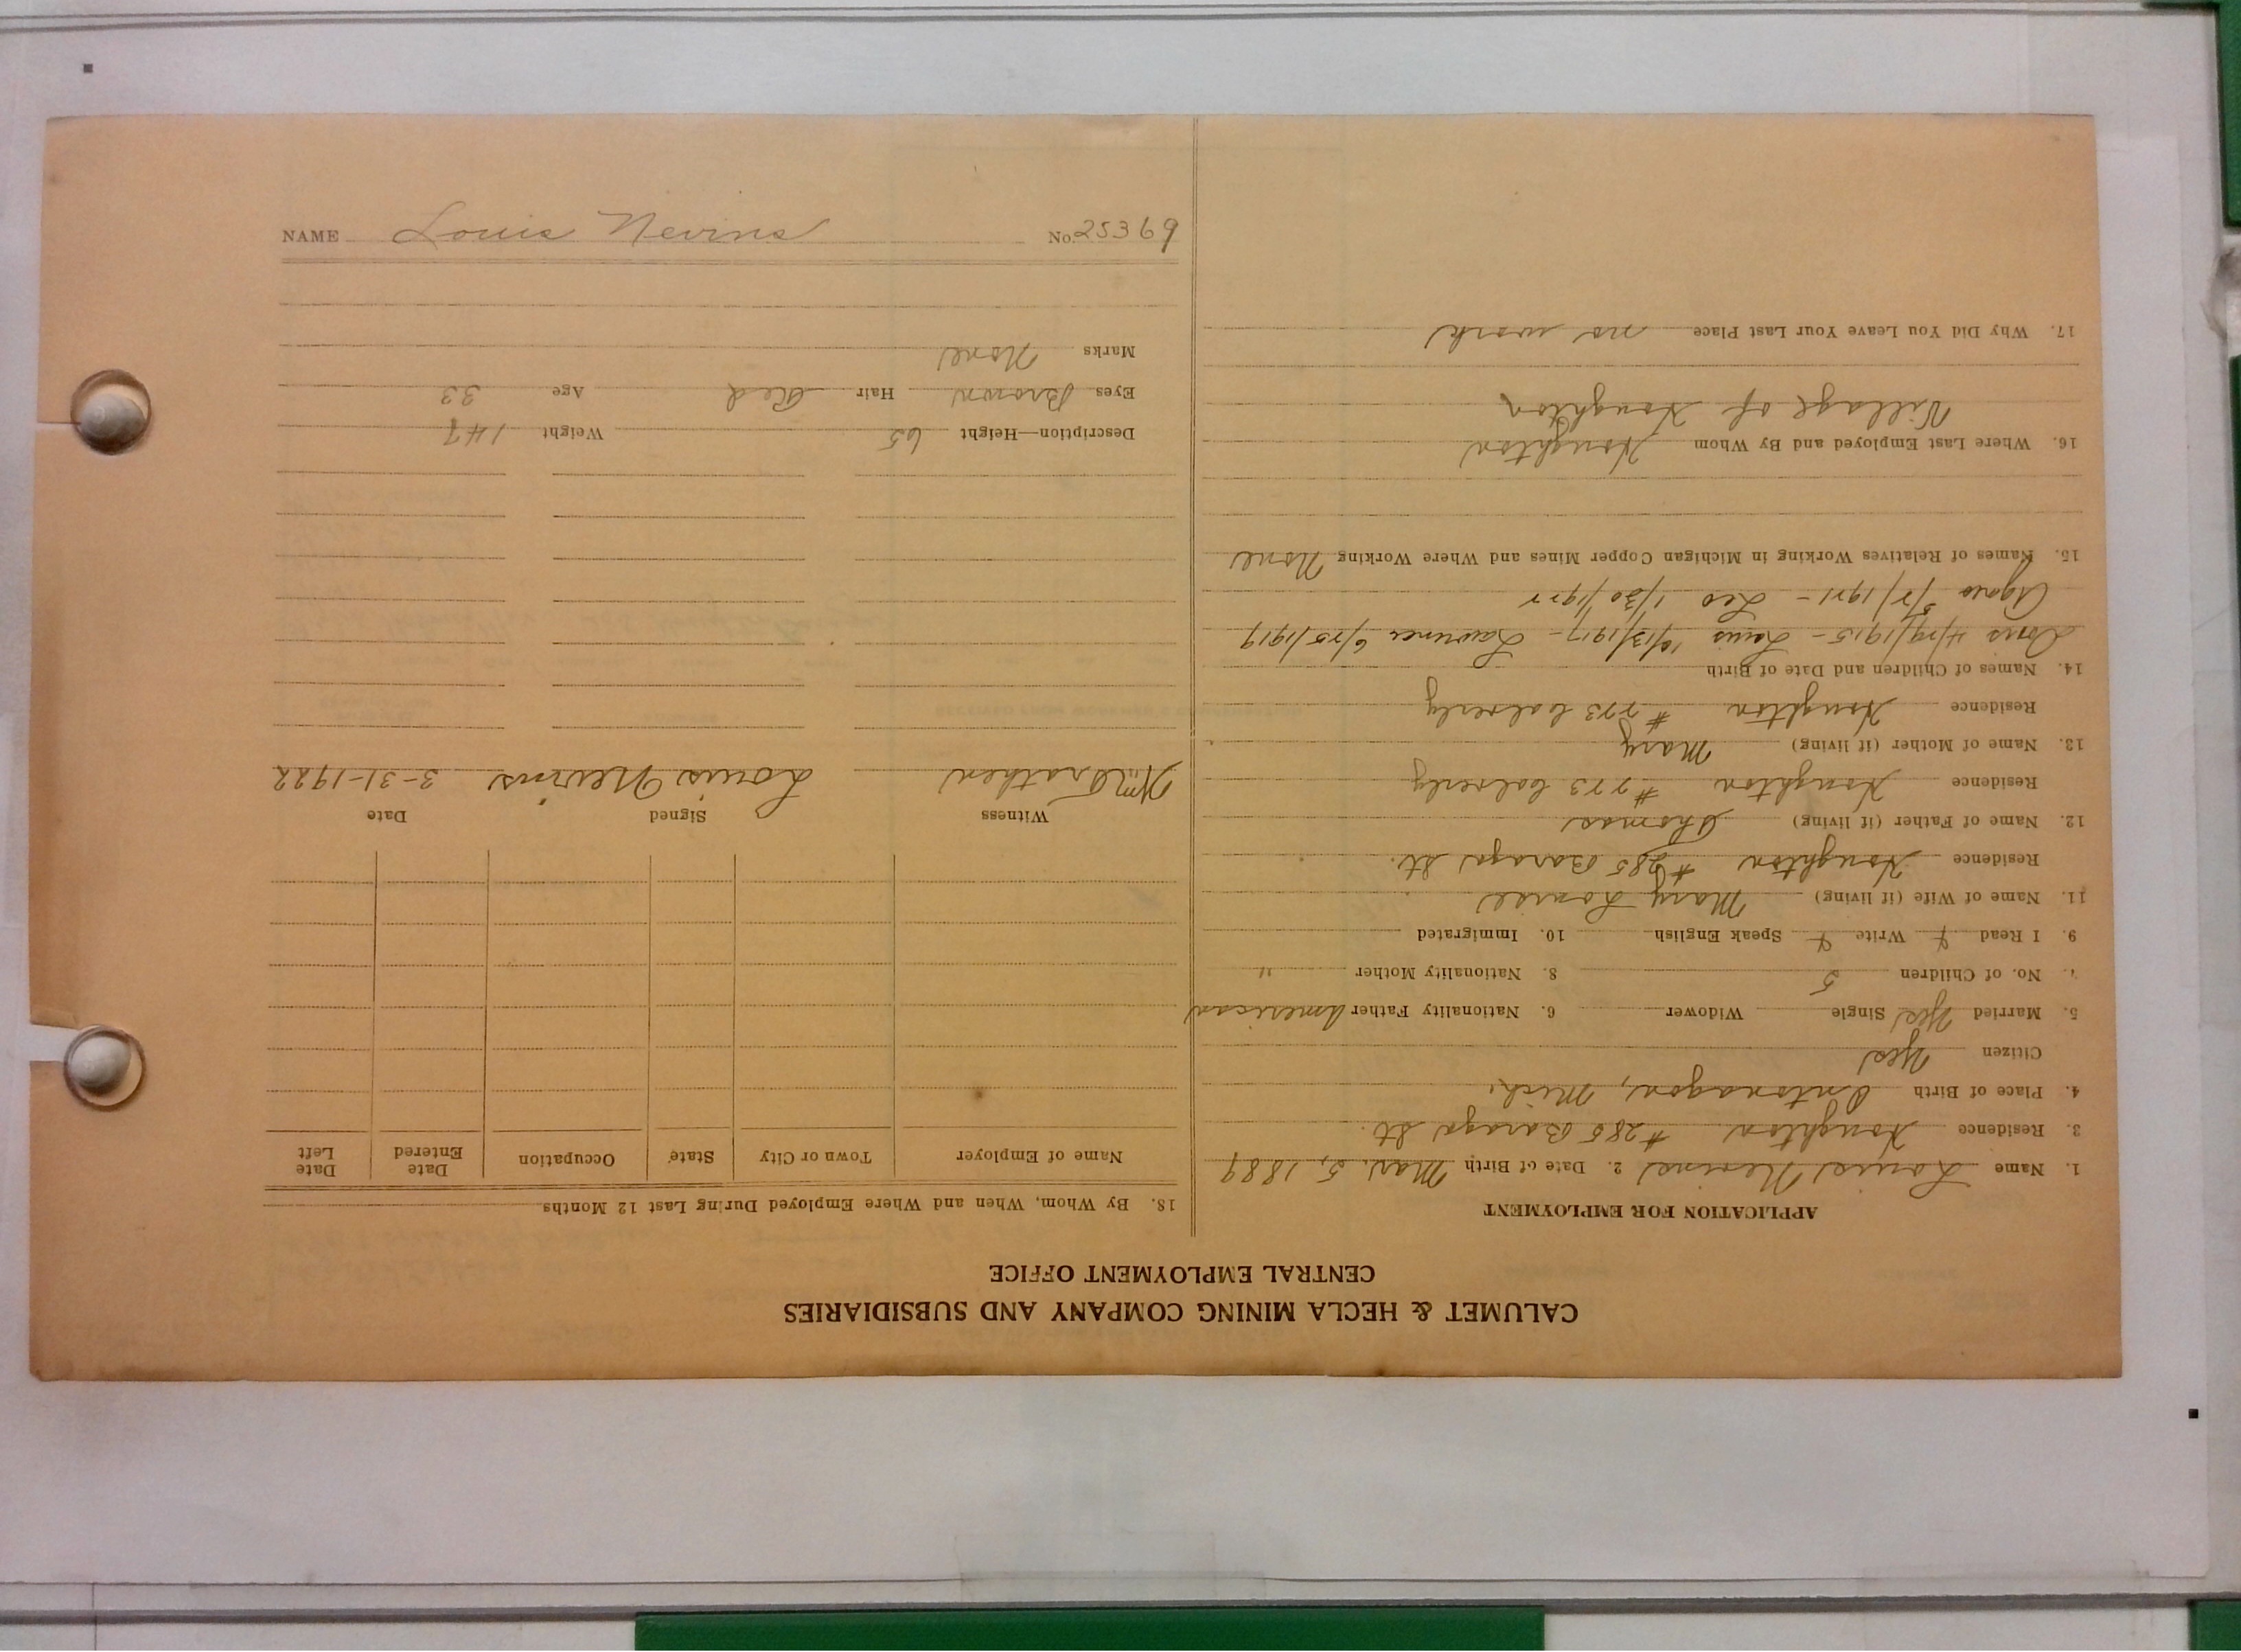 CALUMET & HECLA MINING COMPANY AND SUBSIDIARIES
CENTRAL EMPLOYMENT OFFICE
APPLICATION FOR EMPLOYMENT
1. Name Louis Nevins 2. Date of Birth Mar. 5, 1889
3. Residence Houghton #285 Baraga St.
4. Place of Birth Ontonagon, Mich.
Citizen Yes
5. Married Yes Single Widower 6. Nationality Father American
7. No. of Children 5 8. Nationality Mother "
9. I Read Write Speak English 10. Immigrated
11. Name of Wife (if living) Mary Louise
Residence Houghton #285 Baraga St.
12. Name of Father (if living) Thomas
Residence Houghton #773
13. Name of Mother (if living) Mary
Residence Houghton #773
14. Names of Children and Date of Birth
4/19/1915 - Louis 10/13/1917 - Lawrence 6/25/1919
Agnes 5/2/1921 - Leo 1/30/1922
15. Names of Relatives Working in Michigan Copper Mines and Where Working None
16. Where Last Employed and By Whom Houghton
Village of Houghton
17. Why Did You Leave Your Last Place no work
18. By Whom, When and Where Employed During Last 12 Months
Name of Employer Town or City State Occupation Date Entered Date Left
Witness Signed Date
Wm Trathen Louis Nevins 3-31-1922
Description—Height 65 Weight 147
Eyes Brown Hair Red Age 33
Marks None
NAME Louis Nevins No. 25369